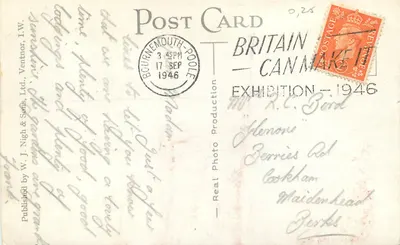 0,25
POST CARD
BOURNEMOUTH-POOLE
3-PM
17 SEP
1946
BRITAIN
CAN MAKE IT
EXHIBITION - 1946
Published by W. J. Nigh & Sons, Ltd., Ventnor, I.W.
Real Photo Production
Just a few
lines to let you know
that we are having a lovely
time, plenty of food, good
lodgings and plenty of
sunshine. The gardens are grand
R.C. Bond
"Glenone"
Berries Rd
Cookham
Maidenhead
Berks